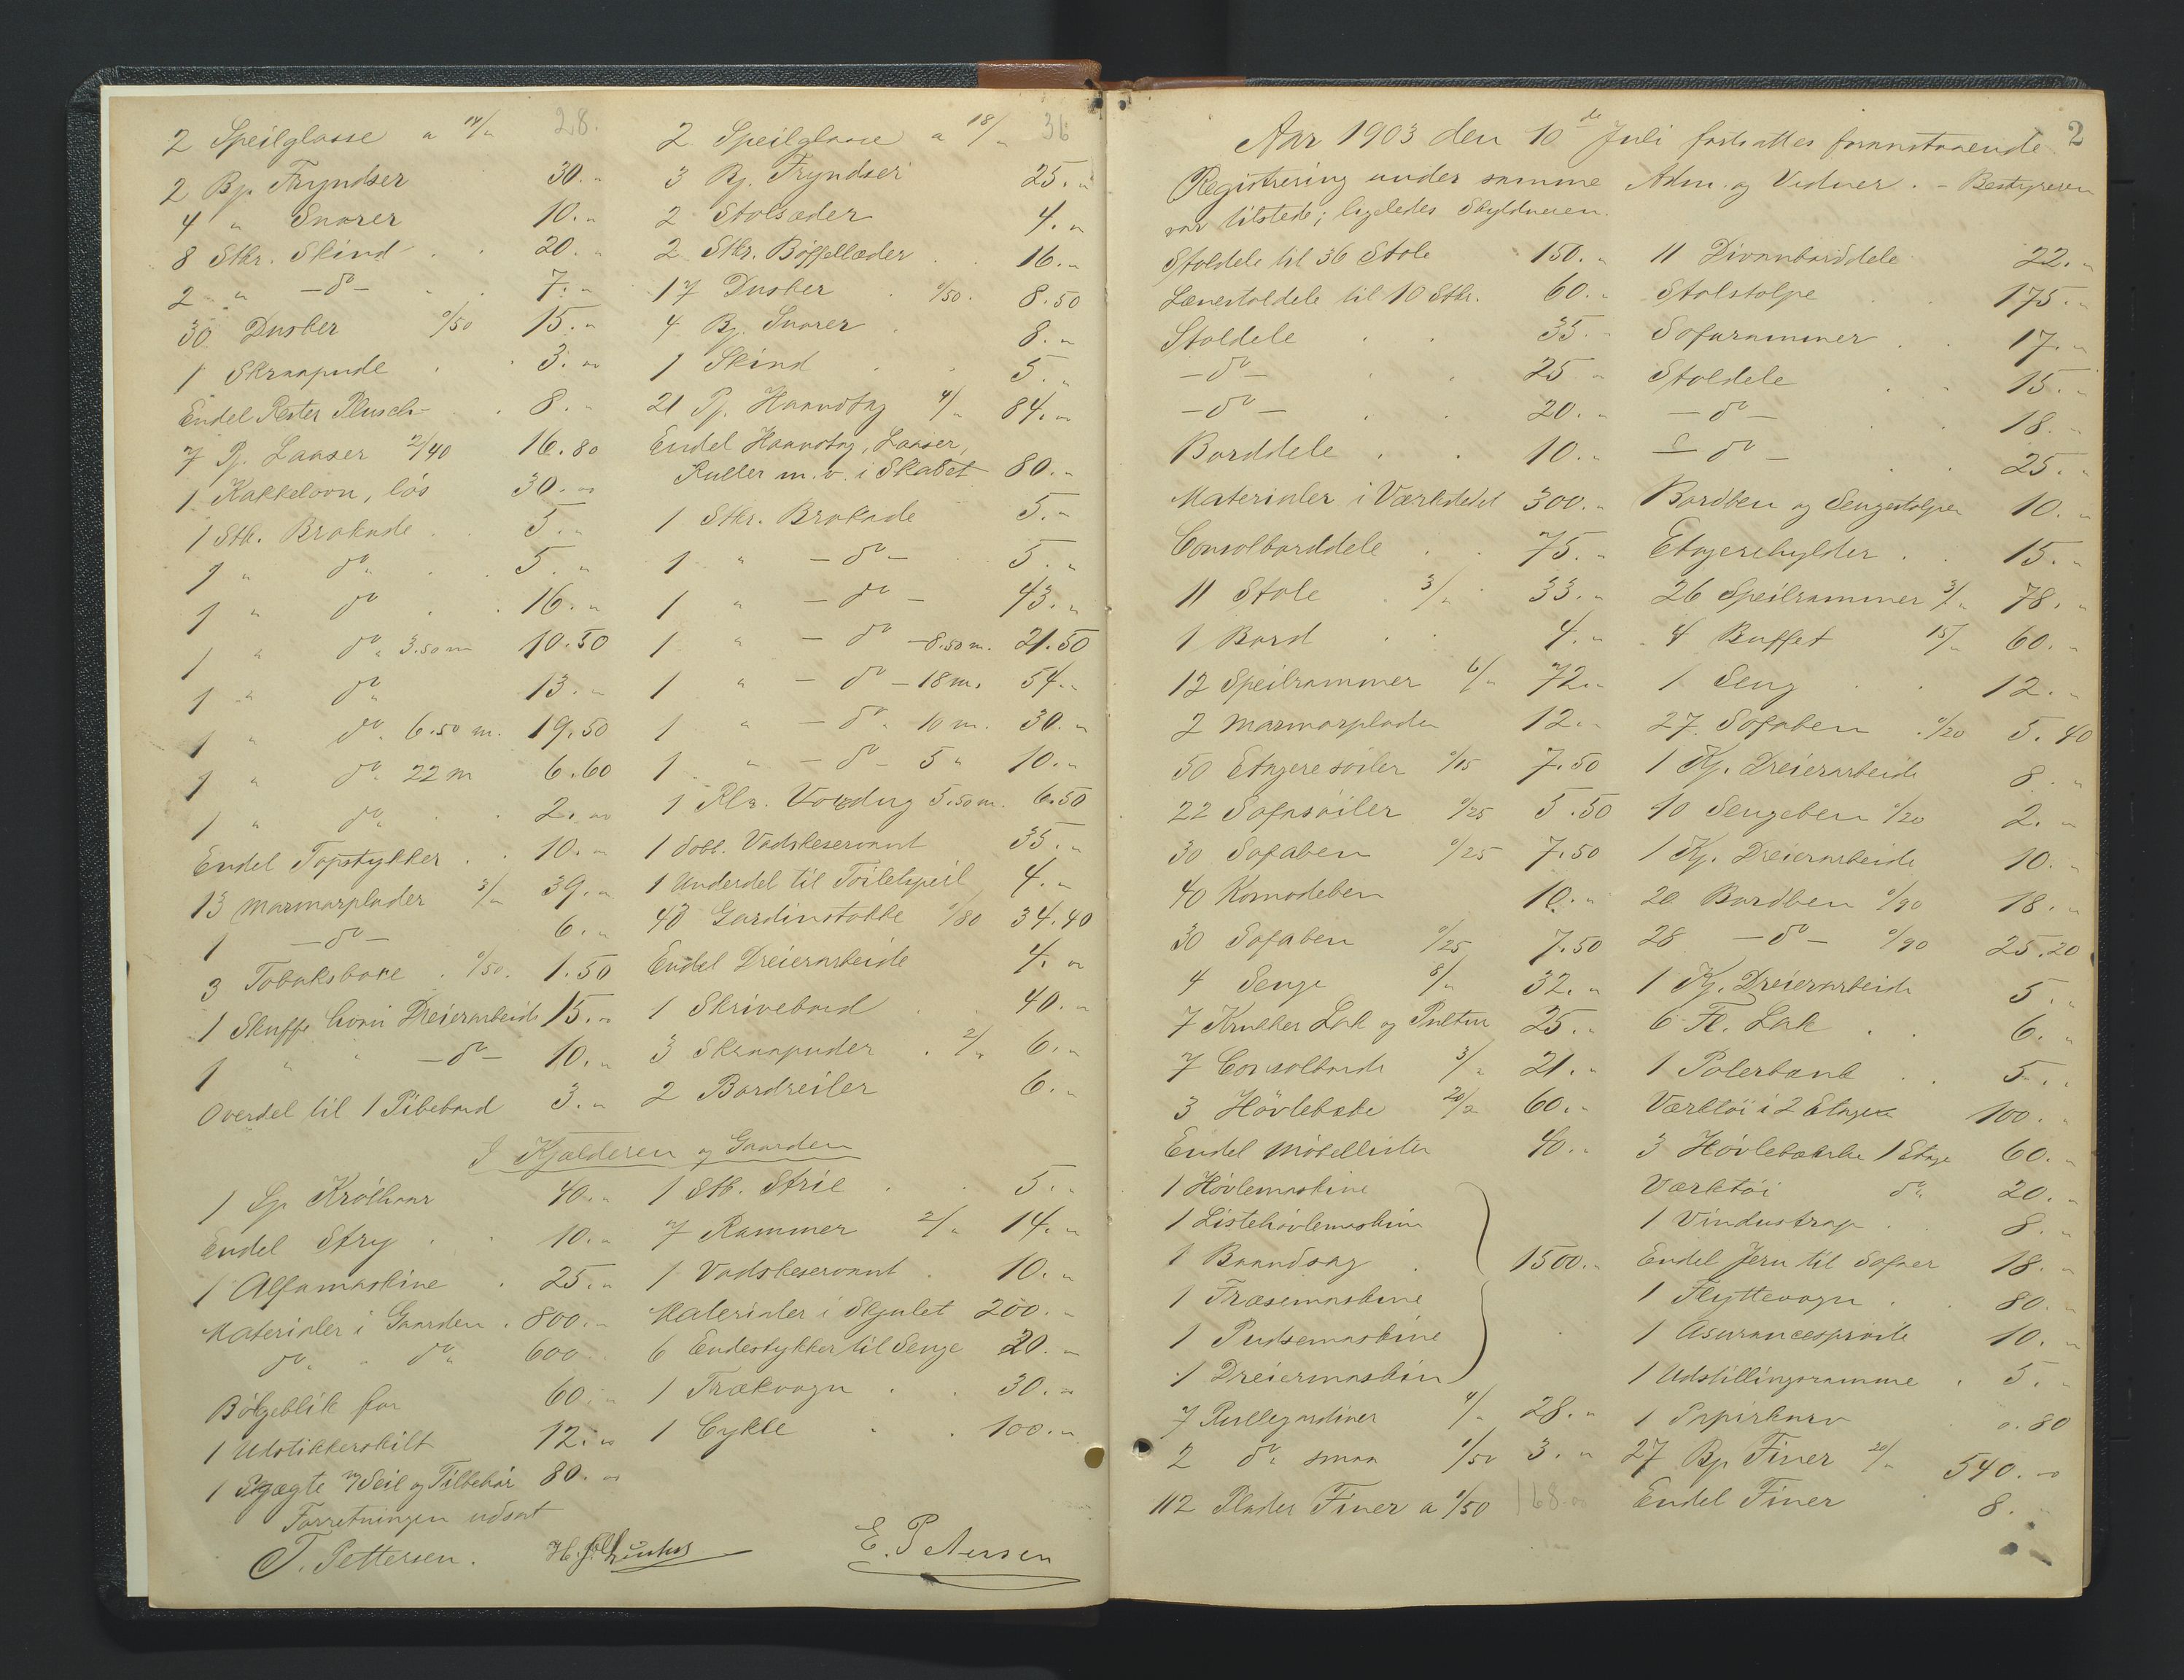 2 Speilglasse a 14/„ 28.
2 Bp. Fryndser 30.„
4 „ Snorer 10.„
8 Stkr. Skind 20.„
2 „ -do- 7.„
30 Dusker 0/50 15.„
1 Skraapude 3.„
Endel Rester Plusch 8.„
7 Pj. Laaser 2/40 16.80
1 Kakkelovn, lös 30.„
1 Stk. Brokade 5.„
1 „ do„ 5.„
1 „ do 16.„
1 „ do„ 3.50 m 10.50
1 „ do„ 13.„
1 „ do„ 6.50 m. 19.50
1 „ do„ 22 m 6.60
1 „ do„ 2.„
Endel Topstykker 10.„
13 Marmorplader 3/„ 39.„
1 -do- 6.„
3 Tobaksborde 0/50. 1.50
1 Skuffe hvori Dreierarbeide 15.„
1 „ „ -do- 10.„
Overdel til 1 Pibebord 3.„
2 Speilglasse a 18/„ 36
3 Bj. Fryndser 25.„
2 Stolsæder 4.„
2 Stkr. Böffellæder 16.„
17 Dusker 0/50. 8.50
4 Bj. Snorer 8.„
1 Skind 5.„
21 Pj. Haandtag 4/„ 84.„
Endel Haandtag, Laaser,
Ruller m. v. i Skabet 80.„
1 Stkr. Brokade 5.„
1 „ -do- 5.„
1 „ -do- 43.„
1 „ -do- 8.50 m. 21.50
1 „ -do- 18 m. 54.„
1 „ -do„ 10 m. 30.„
1 „ -do- 5 „ 10.„
1 Rln. Voxdug 5.50 m. 6.50
1 dobl. Vadskeservant 35.„
1 Underdel til Toiletspeil 4.„
43 Gardinstokke 0/80 34.40
Endel Dreierarbeide 4.„
1 Skrivebord 40.„
3 Skraapuder 2/„ 6.„
2 Bordreiler 6.„
I Kjælderen og Gaarden
1 Sp. Krölhaar 40.„
Endel Stry 10.„
1 Alfamaskine 25.„
Materialer i Gaarden 800.„
do„ „ do„ 600
Bölgeblik for 60.„
1 Udstikkerskilt 12.„
1 Sjægte m/ Seil og Tilbehör 80.„
1 Stk. Strie 5.„
7 Rammer 2/„ 14.„
1 Vadskeservant 10.„
Materialer i Skjulet 200.„
6 Endestykker til Senge 20.„
1 Trækvogn 30.„
1 Cykle 100.„
Forretningen udsat
T. Pettersen. E. Petersen
2
Aar 1903 den 10de Juli fortsattes foranstaaende
Registrering under samme Adm. og Vidner. - Bestyreren
var tilstede; ligeledes Skyldneren.
Stoldele til 36 Stole 150.„
Lænestoldele til 10 Stk. 60.„
Stoldele 35.„
-do- 25 „
-do- 20.„
Borddele 10.„
Materialer i Værkstedet 300.„
Consolborddele 75.„
11 Stole 3/„ 33.„
1 Bord 4.„
12 Speilrammer 6/„ 72„
2 Marmorplader 12.„
50 Etageresöiler 0/15 7.50
22 Sofasöiler 0/25 5.50
30 Sofaben 0/25 7.50
40 Komodeben 10.„
30 Sofaben 0/25 7.50
4 Senge 8/„ 32.„
7 Krukker Lak og Politur 25.„
7 Consolborde 3/„ 21.„
3 Hövlebæke 20/„ 60.„
Endel Möbellister 40.„
1 Hövlemaskine
1 Listehövlemaskin
1 Baandsag 1500.„
1 Fræsemaskine
1 Pudsemaskine
1 Dreiermaskin
7 Rullegardiner 4/„ 28.„
2 do„ smaa 1/50 3.„
112 Plader Finer a 1/50 168.„
11 Divanborddele 22.„
Stolstolpe 175.„
Sofarammer 17.„
Stoldele 15.„
-do- 18.„
-do- 25.„
Bordben og Sengestolper 10.„
Etagerehylder 15.„
26 Speilrammer 3/„ 78.„
4 Buffet 15/„ 60.„
1 Seng 12.„
27 Sofaben 0/20 5.40
1 Kj. Dreierarbeide 8.„
10 Sengeben 0/20 2.„
1 Kj. Dreierarbeide 10.„
20 Bordben 0/90 18.„
28 -do- 0/90 25.20
1 Kj. Dreierarbeide 5.„
6 Fl. Lak 6.„
1 Polerbænk 5.„
Værktöi i 2 Etager 100.„
3 Hövlebænke 1 Etage 60.„
Værktöi do„ 20.„
1 Vindustrap 8.„
Endel Jern til Sofaer 18.„
1 Flyttevogn 80.„
1 Asurancespröite 10.„
1 Udstillingsramme 5.„
1 Papirkurv 0.80
27 Bp. Finer 20/„ 540.„
Endel Finer 8.